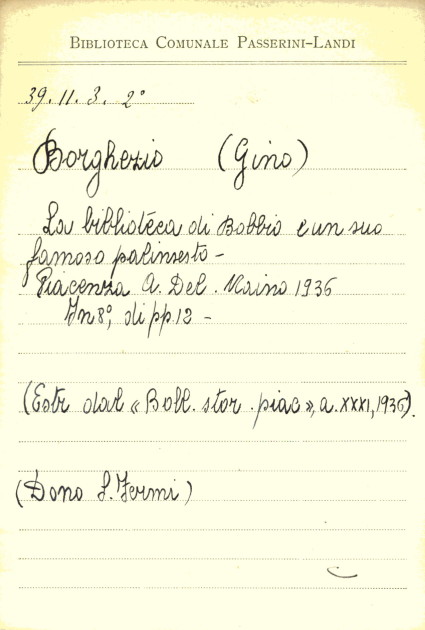 BIBLIOTECA COMUNALE PASSERINI-LANDI
39. II. 3. 2°
Borghezio (Gino)
La biblioteca di Bobbio e un suo
famoso palinsesto -
Piacenza A. Del. Maino 1936
In 8°, di pp. 12 -
(Estr dal « Boll. stor. piac », a. XXXI, 1936).
(Dono S. Fermi)